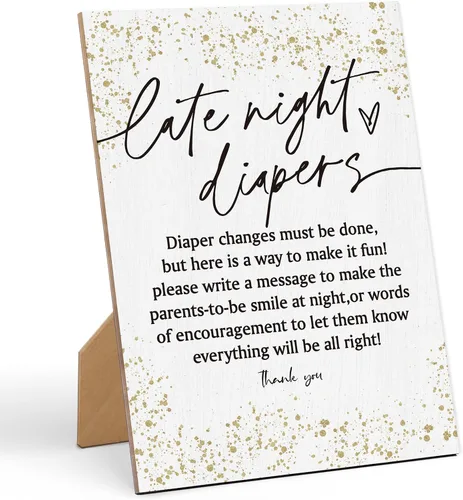 late night
diapers
Diaper changes must be done,
but here is a way to make it fun!
please write a message to make the
parents-to-be smile at night,or words
of encouragement to let them know
everything will be all right!
thank you